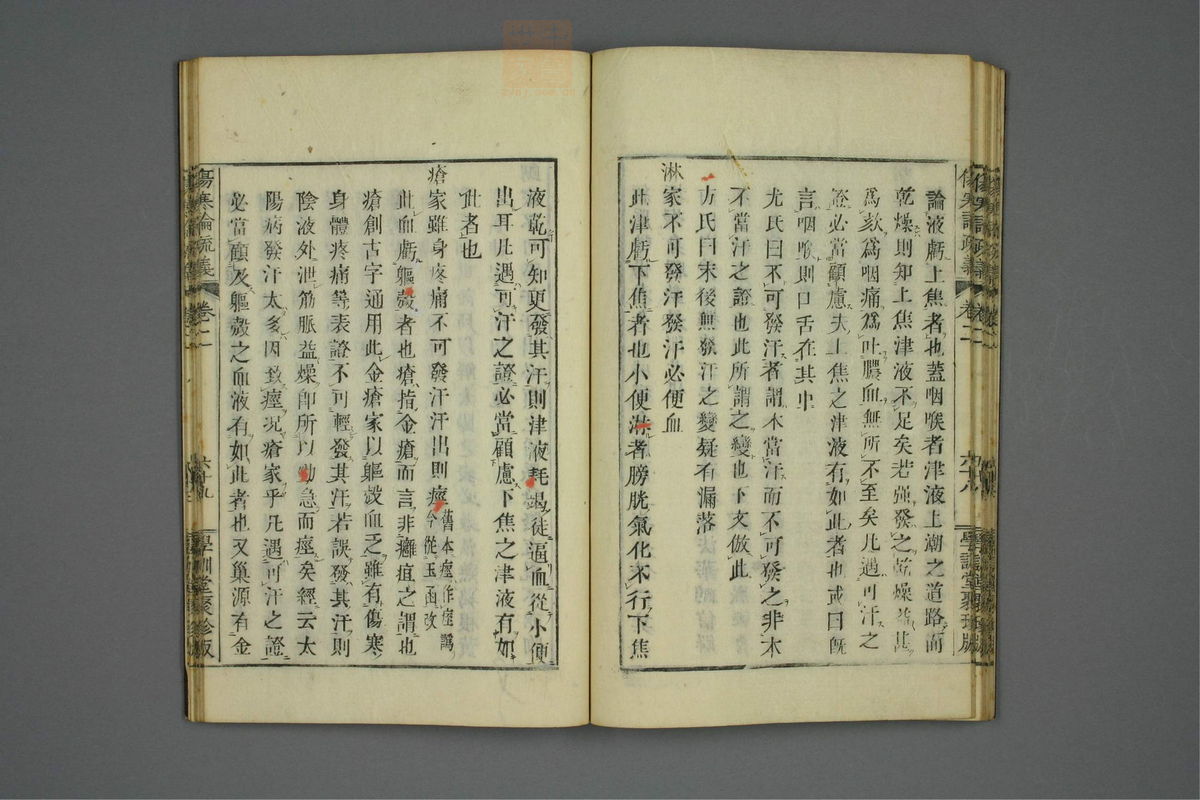 論液虧上焦者也蓋咽喉者津液上潮之道路而
乾燥則知上焦津液不足矣若强發之乾燥益甚
爲欬爲咽痛爲吐膿血無所不至矣凡遇可汗之
證必當顧慮夫上焦之津液有如此者也或曰既
言咽喉則口舌在其中
尤氏曰不可發汗者謂本當汗而不可發之非本
不當汗之證也此所謂之變也下文倣此
方氏曰末後無發汗之變疑有漏落
淋家不可發汗發汗必便血
此津虧下焦者也小便淋者膀胱氣化不行下焦
傷寒論疏義
卷二
六十八
學訓堂聚珍版
液乾可知更發其汗則津液耗竭徒逼血從小便
出耳凡遇可汗之證必當顧慮下焦之津液有如
此者也
瘡家雖身疼痛不可發汗汗出則痙舊本痙作痓譌今從玉函改
此血虧軀殼者也瘡指金瘡而言非癰疽之謂也
瘡創古字通用此金瘡家以軀殼血乏雖有傷寒
身體疼痛等表證不可輕發其汗若誤發其汗則
陰液外泄筋脈益燥卽所以勁急而痙矣經云太
陽病發汗太多因致痙况瘡家乎凡遇可汗之證
必當顧及軀殼之血液有如此者也又巢源有金
傷寒論疏義
卷二
六十九
學訓堂聚珍版